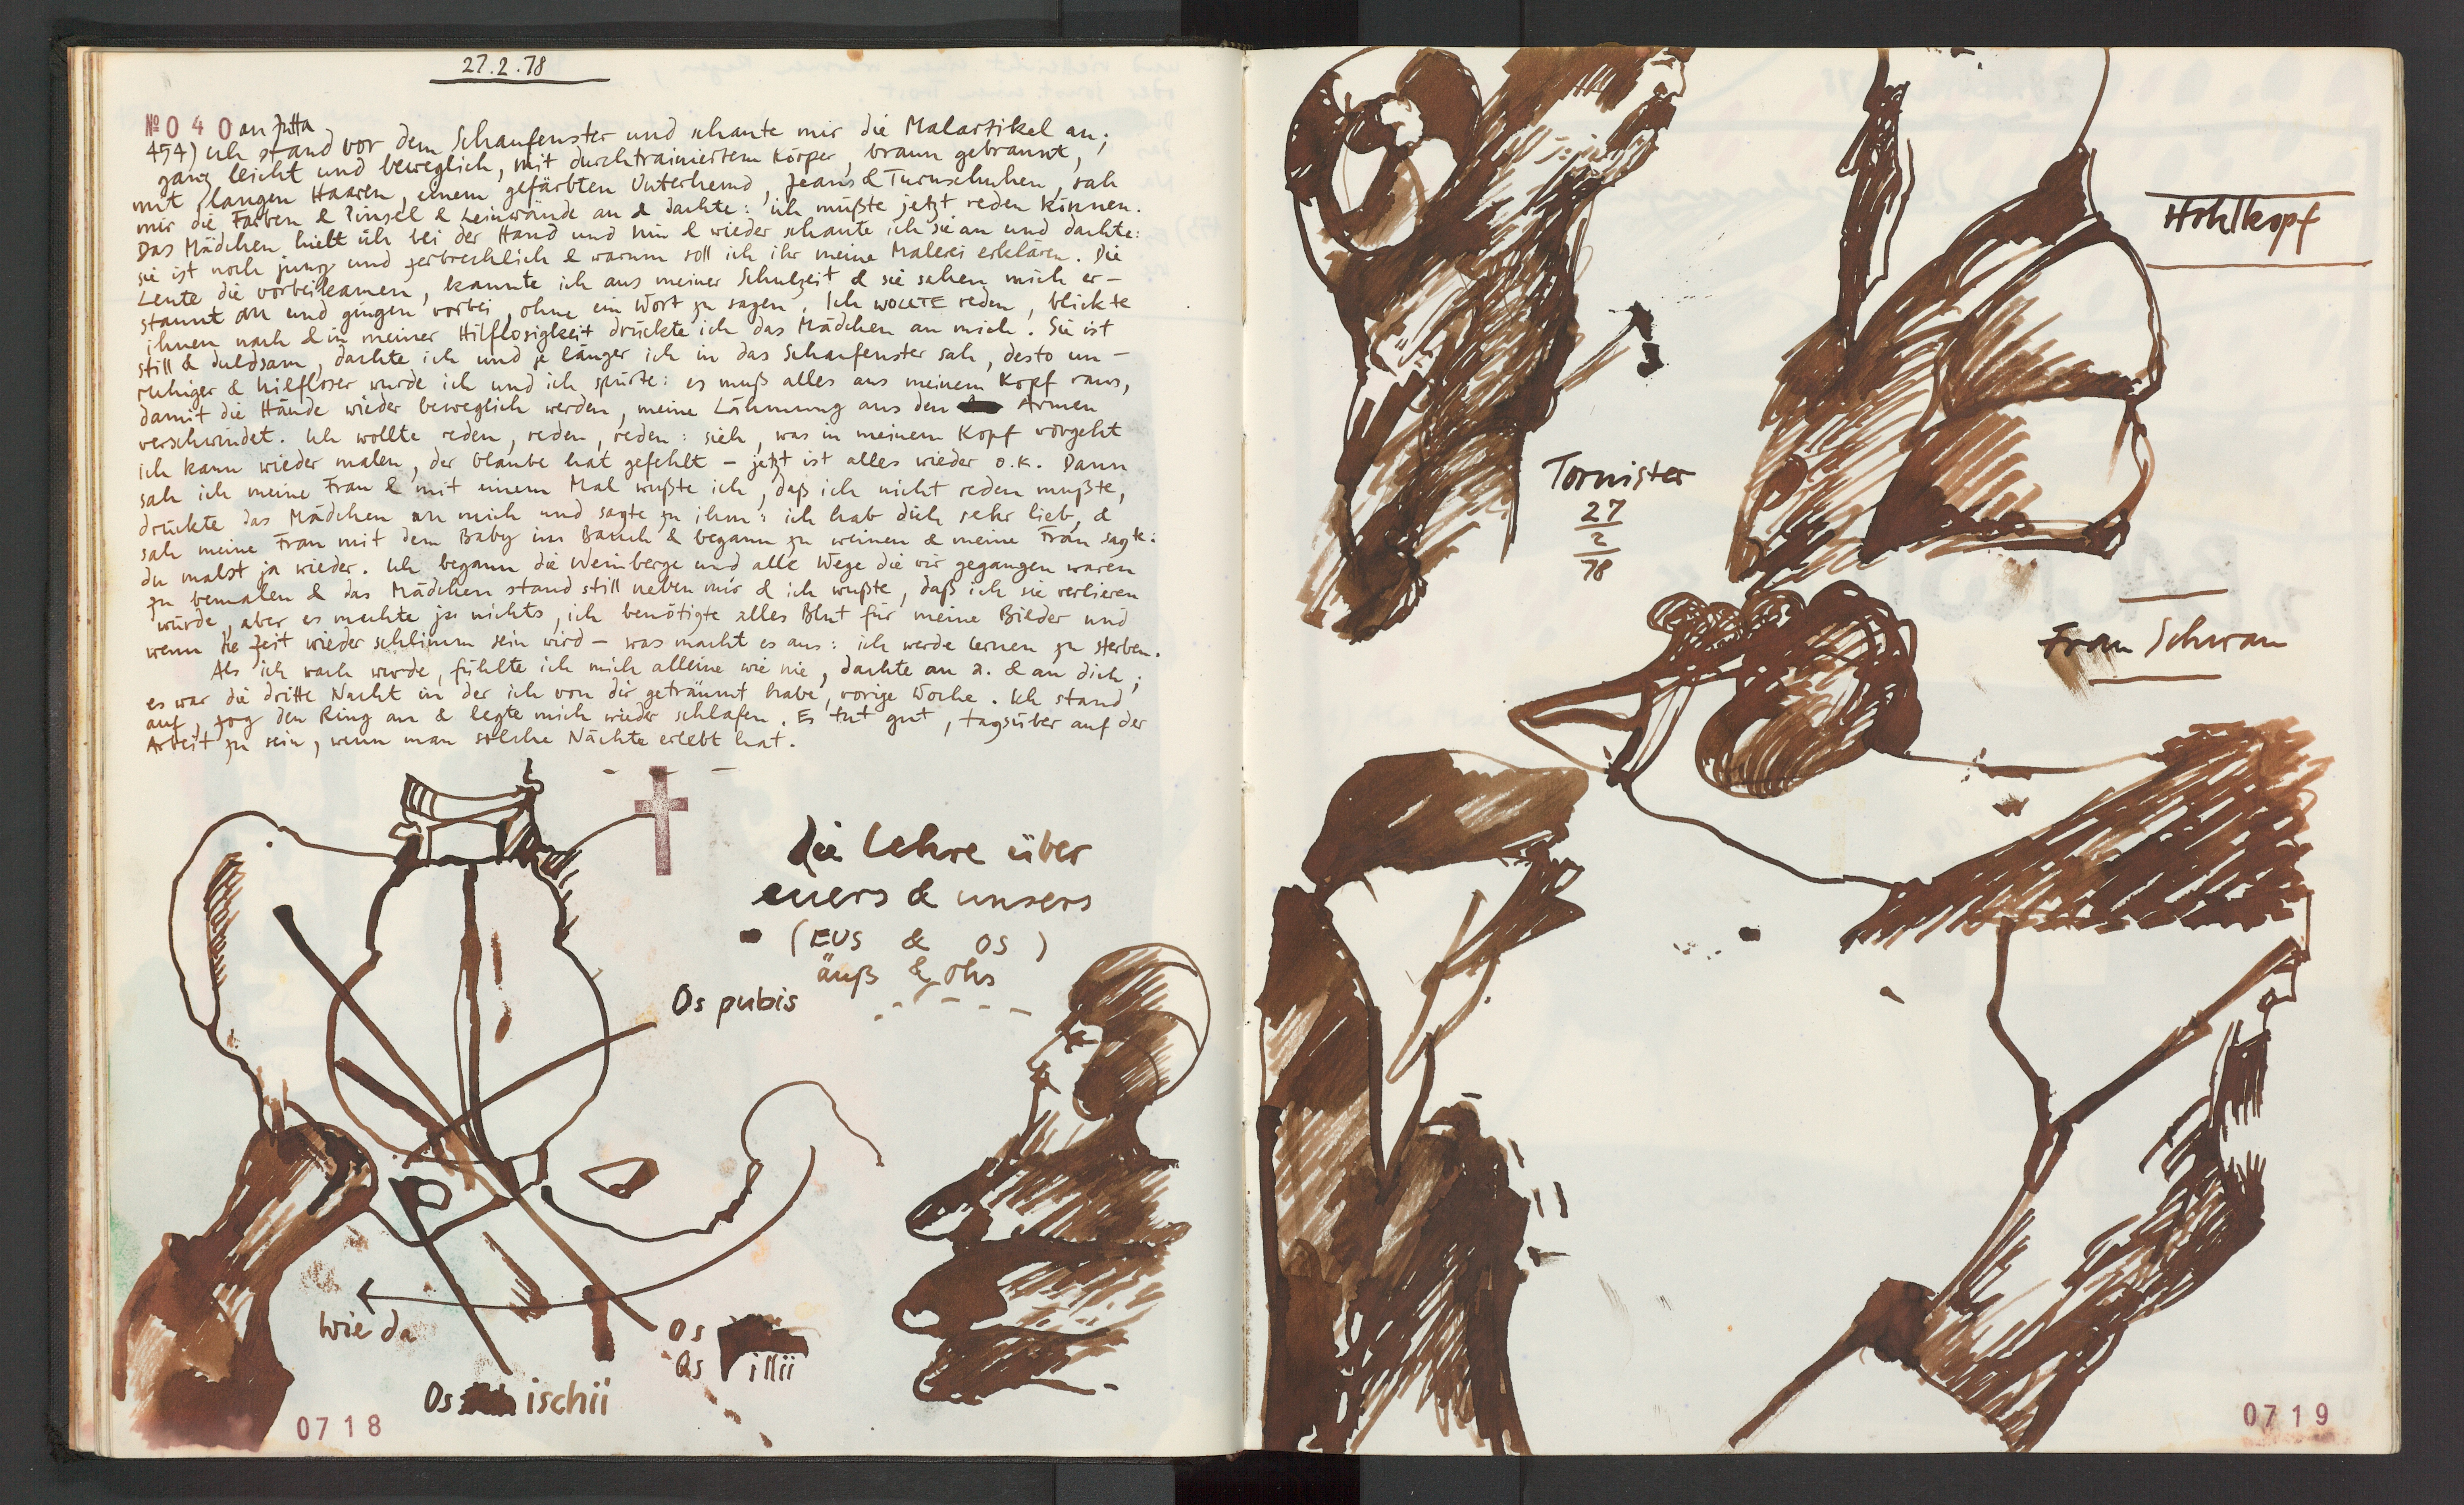 27.2.78
№ 040 an Jutta
454) ich stand vor dem Schaufenster und schaute mir die Malartikel an;
ganz leicht und beweglich, mit durchtrainiertem Körper, braun gebrannt,
mit langen Haaren, einem gefärbten Unterhemd, Jeans & Turnschuhen, sah
mir die Farben & Pinsel & Leinwände an & dachte: ich müßte jetzt reden können.
Das Mädchen hielt ich bei der Hand und hin & wieder schaute ich sie an und dachte:
sie ist noch jung und zerbrechlich & warum soll ich ihr meine Malerei erklären. Die
Leute die vorbeikamen, kannte ich aus meiner Schulzeit & sie sahen mich er-
staunt an und gingen vorbei, ohne ein Wort zu sagen. Ich WOLLTE reden, blickte
ihnen nach & in meiner Hilflosigkeit drückte ich das Mädchen an mich. Sie ist
still & duldsam, dachte ich und je länger ich in das Schaufenster sah, desto un-
ruhiger & hilfloser wurde ich und ich spürte: es muß alles aus meinem Kopf raus,
damit die Hände wieder beweglich werden, meine Lähmung aus den Armen
verschwindet. Ich wollte reden, reden, reden: sieh, was in meinem Kopf vorgeht
ich kann wieder malen, der Glaube hat gefehlt – jetzt ist alles wieder o.k. Dann
sah ich meine Frau & mit einem Mal wußte ich, daß ich nicht reden mußte,
drückte das Mädchen an mich und sagte zu ihm: ich hab dich sehr lieb, &
sah meine Frau mit dem Baby im Bauch & begann zu weinen & meine Frau sagte:
du malst ja wieder. Ich begann die Weinberge und alle Wege die wir gegangen waren
zu bemalen & das Mädchen stand still neben mir & ich wußte, daß ich sie verlieren
würde, aber es machte ja nichts, ich benötigte alles Blut für meine Bilder und
wenn die Zeit wieder schlimm sein wird – was macht es aus: ich werde lernen zu sterben.
Als ich wach wurde, fühlte ich mich alleine wie nie, dachte an a. & an dich;
es war die dritte Nacht in der ich von dir geträumt habe, vorige Woche. Ich stand
auf, zog den Ring an & legte mich wieder schlafen. Es tut gut, tagsüber auf der
Arbeit zu sein, wenn man solche Nächte erlebt hat.
die Lehre über
euers & unsers
(EUS & OS)
äuß & Ohs
Os pubis
wie da
Os
Os illii
Os ischii
0718
Hohlkopf
Tornister
27
2
78
Frau Schwan
0719